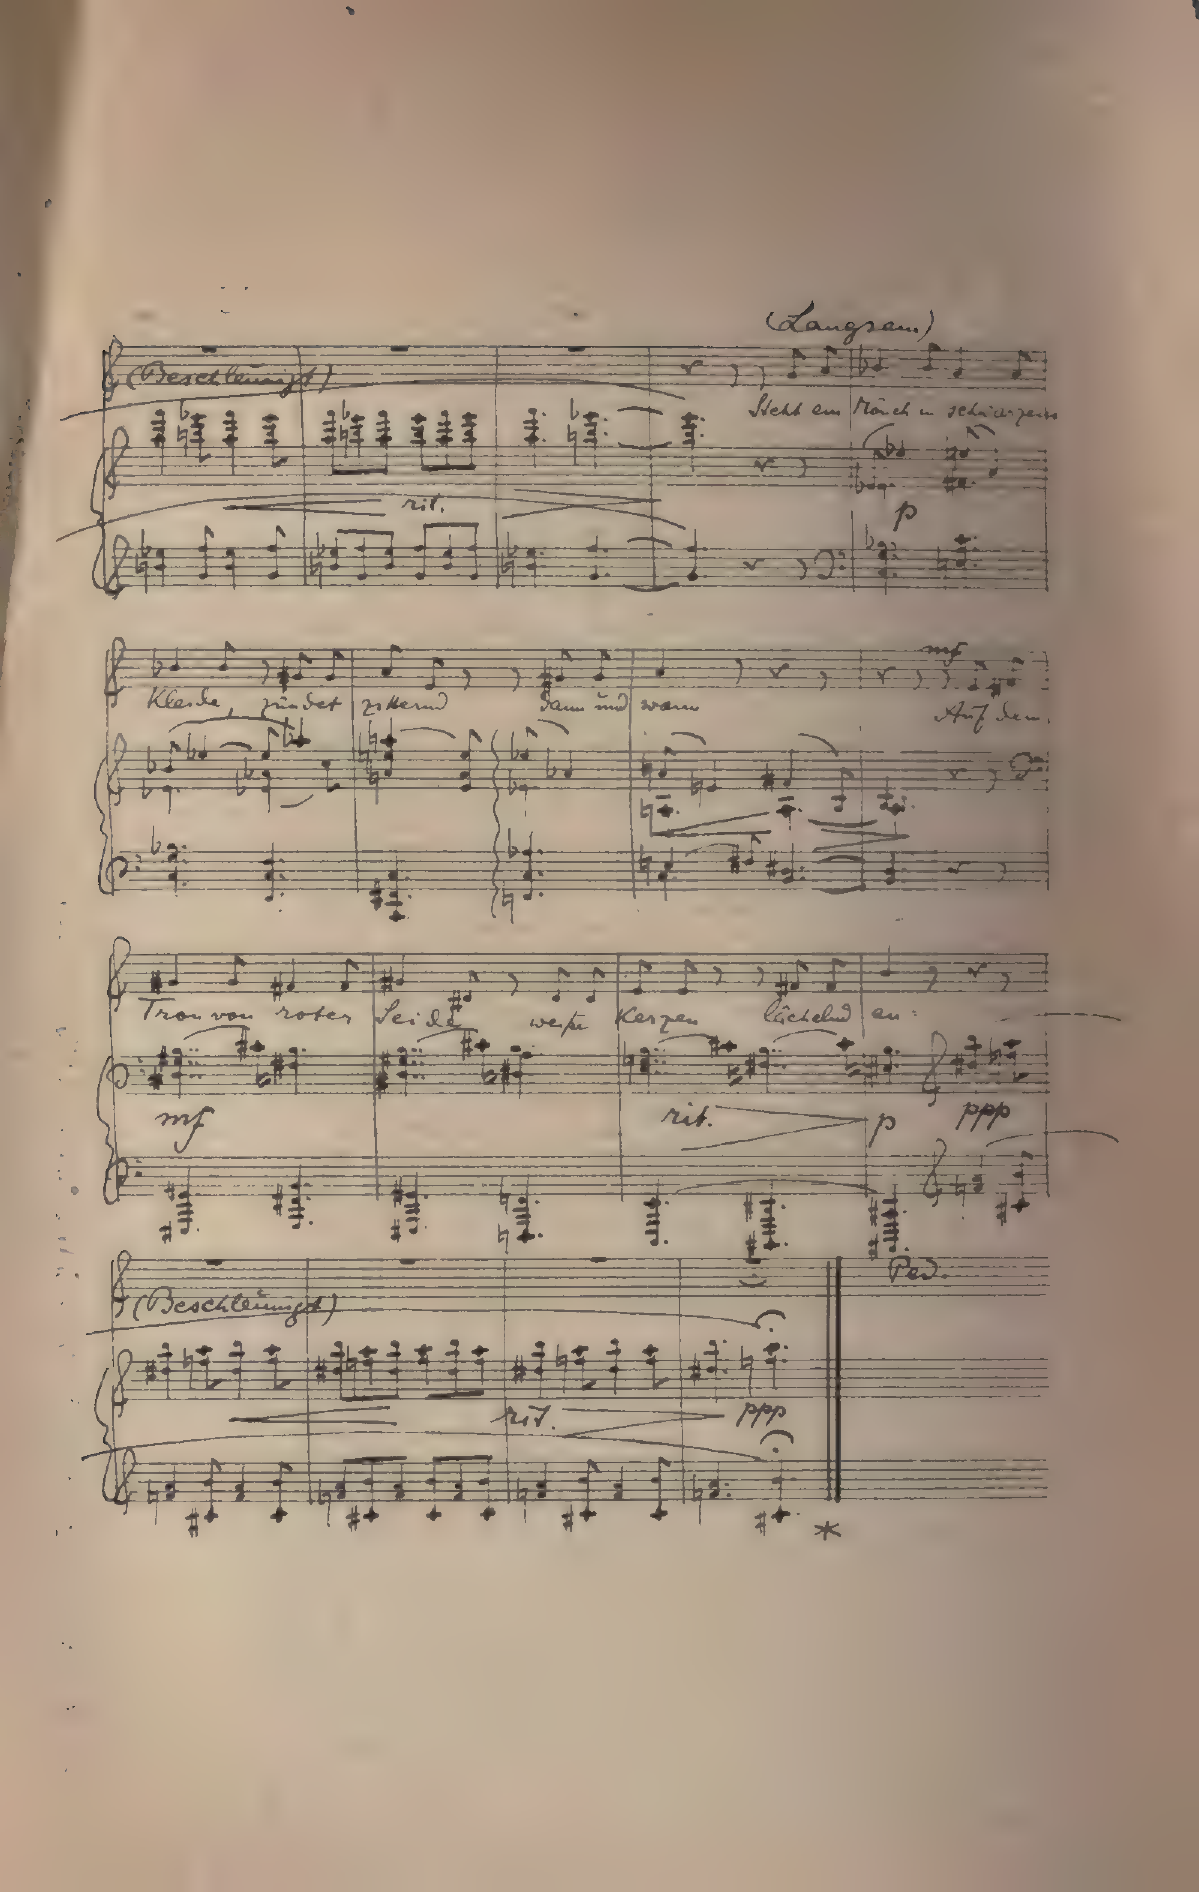 (Langsam)
(Beschleunigt)
Steht ein Mönch in schwarzem
rit.
p
mf
Kleide, zündet zitternd dann und wann
Auf dem
Tron von roter Seide weiße Kerzen lächelnd an:
mf rit. p ppp
Ped.
(Beschleunigt)
rit. ppp